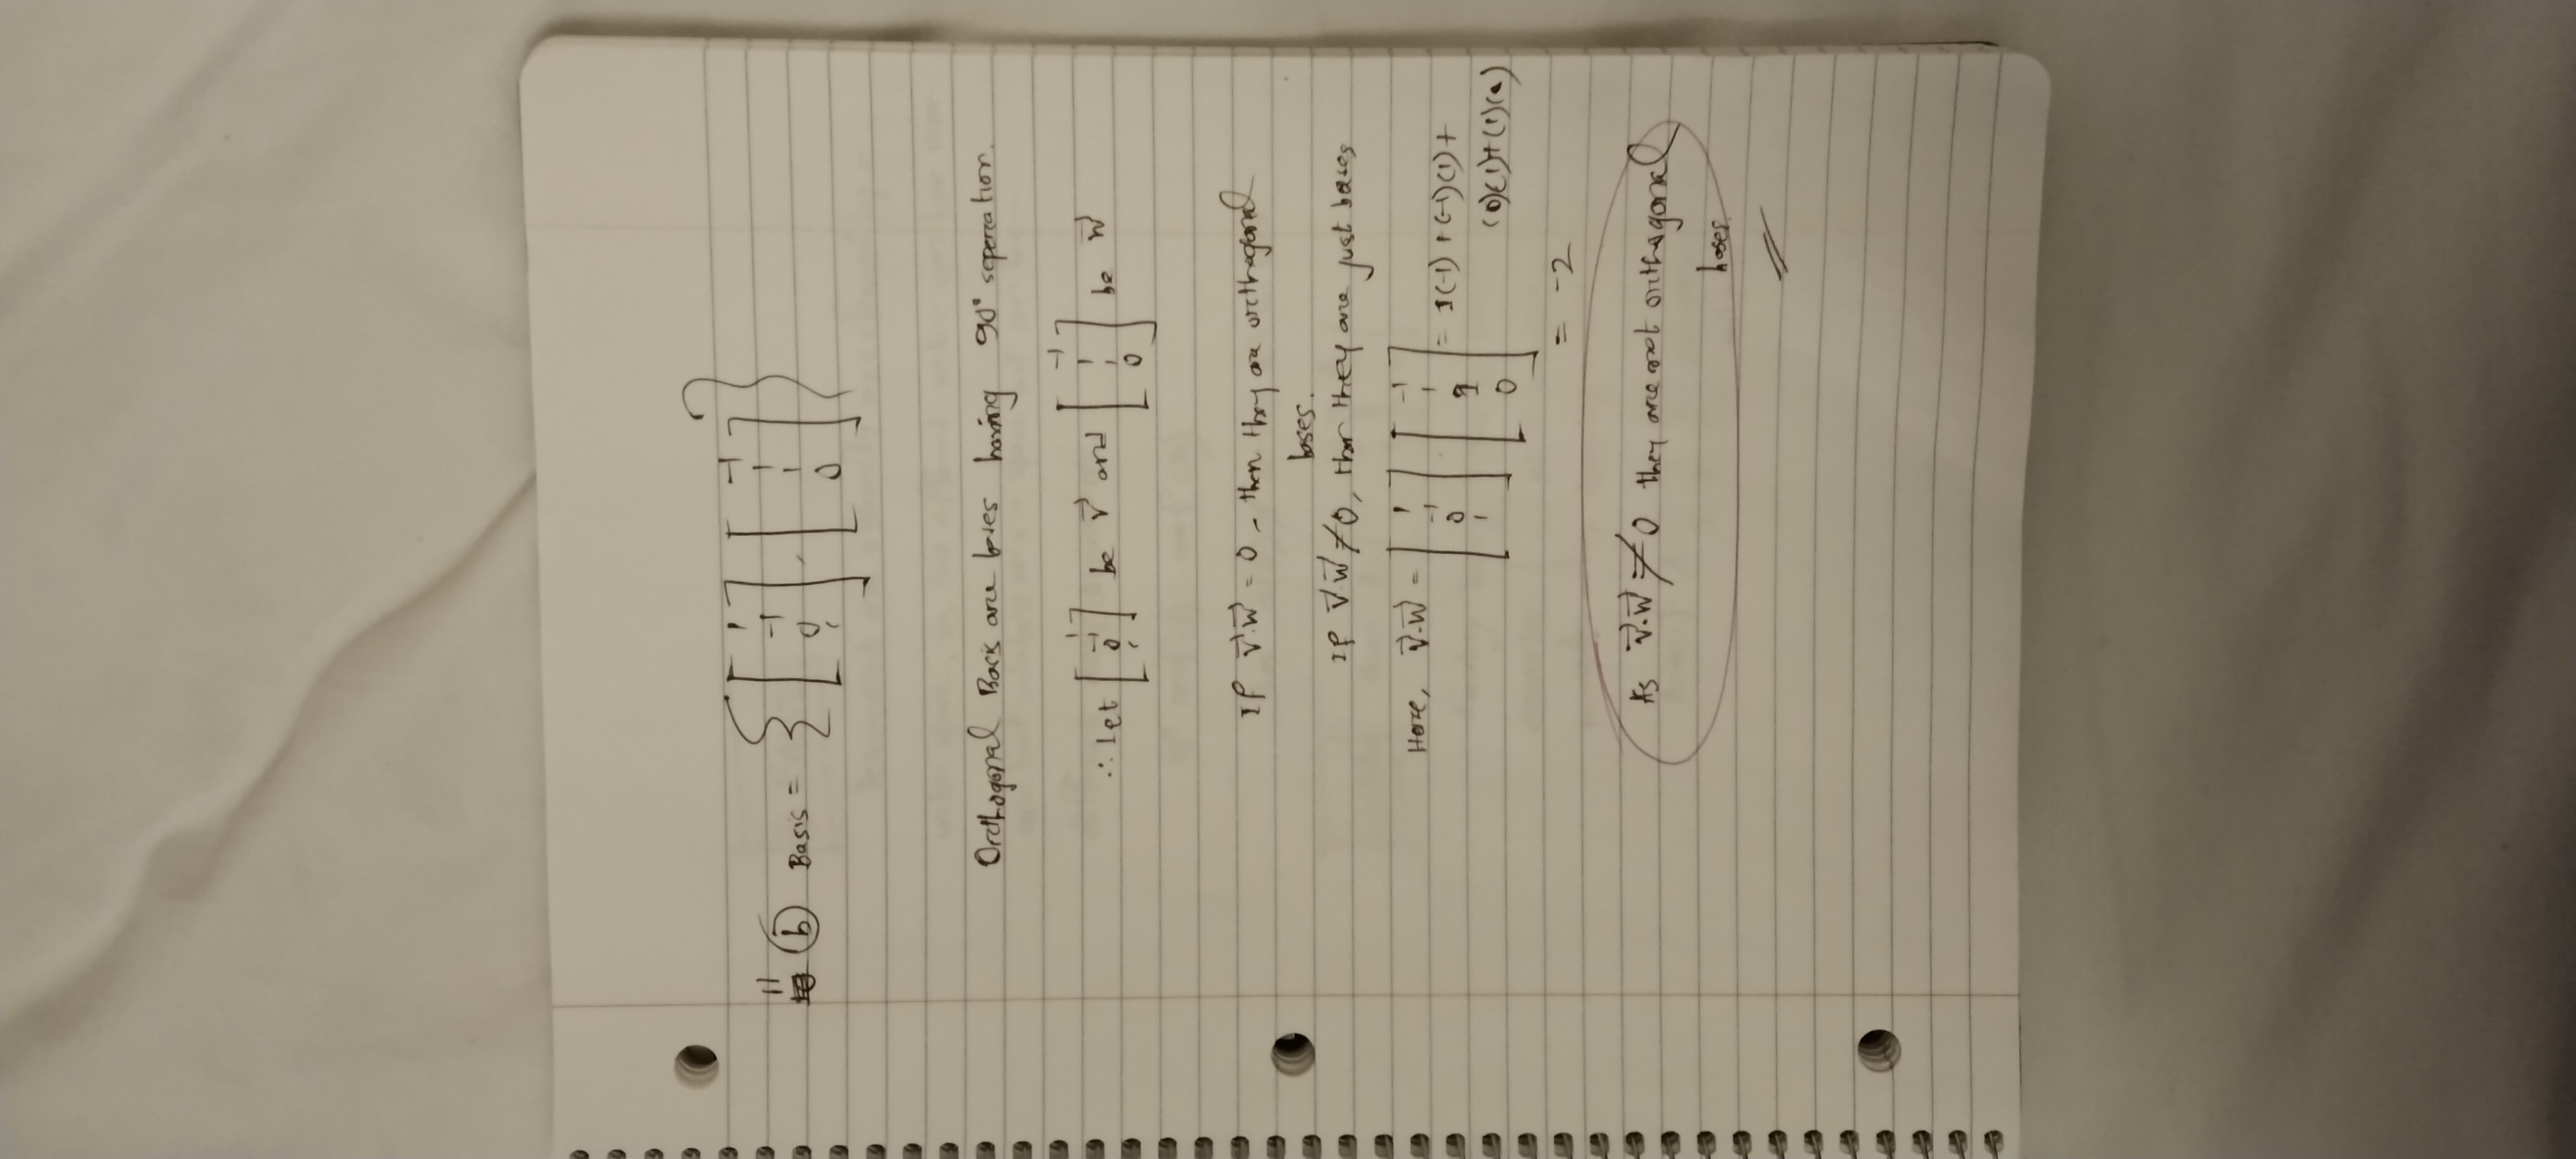 11 (b) Basis = { [1 -1 0 1] , [-1 1 1 0] }
Orthogonal Basis are bases having 90° seperation.
∴ Let [1 -1 0 1] be v⃗ and [-1 1 1 0] be w⃗
If v⃗.w⃗ = 0, then they are orthogonal
bases.
If v⃗ w⃗ ≠ 0, then they are just bases
Here, v⃗.w⃗ = [1 -1 0 1] . [-1 1 1 0] = 1(-1) + (-1)(1) +
(0)(1)+(1)(0)
= -2
As v⃗.w⃗ ≠ 0 they are not orthogonal
bases.